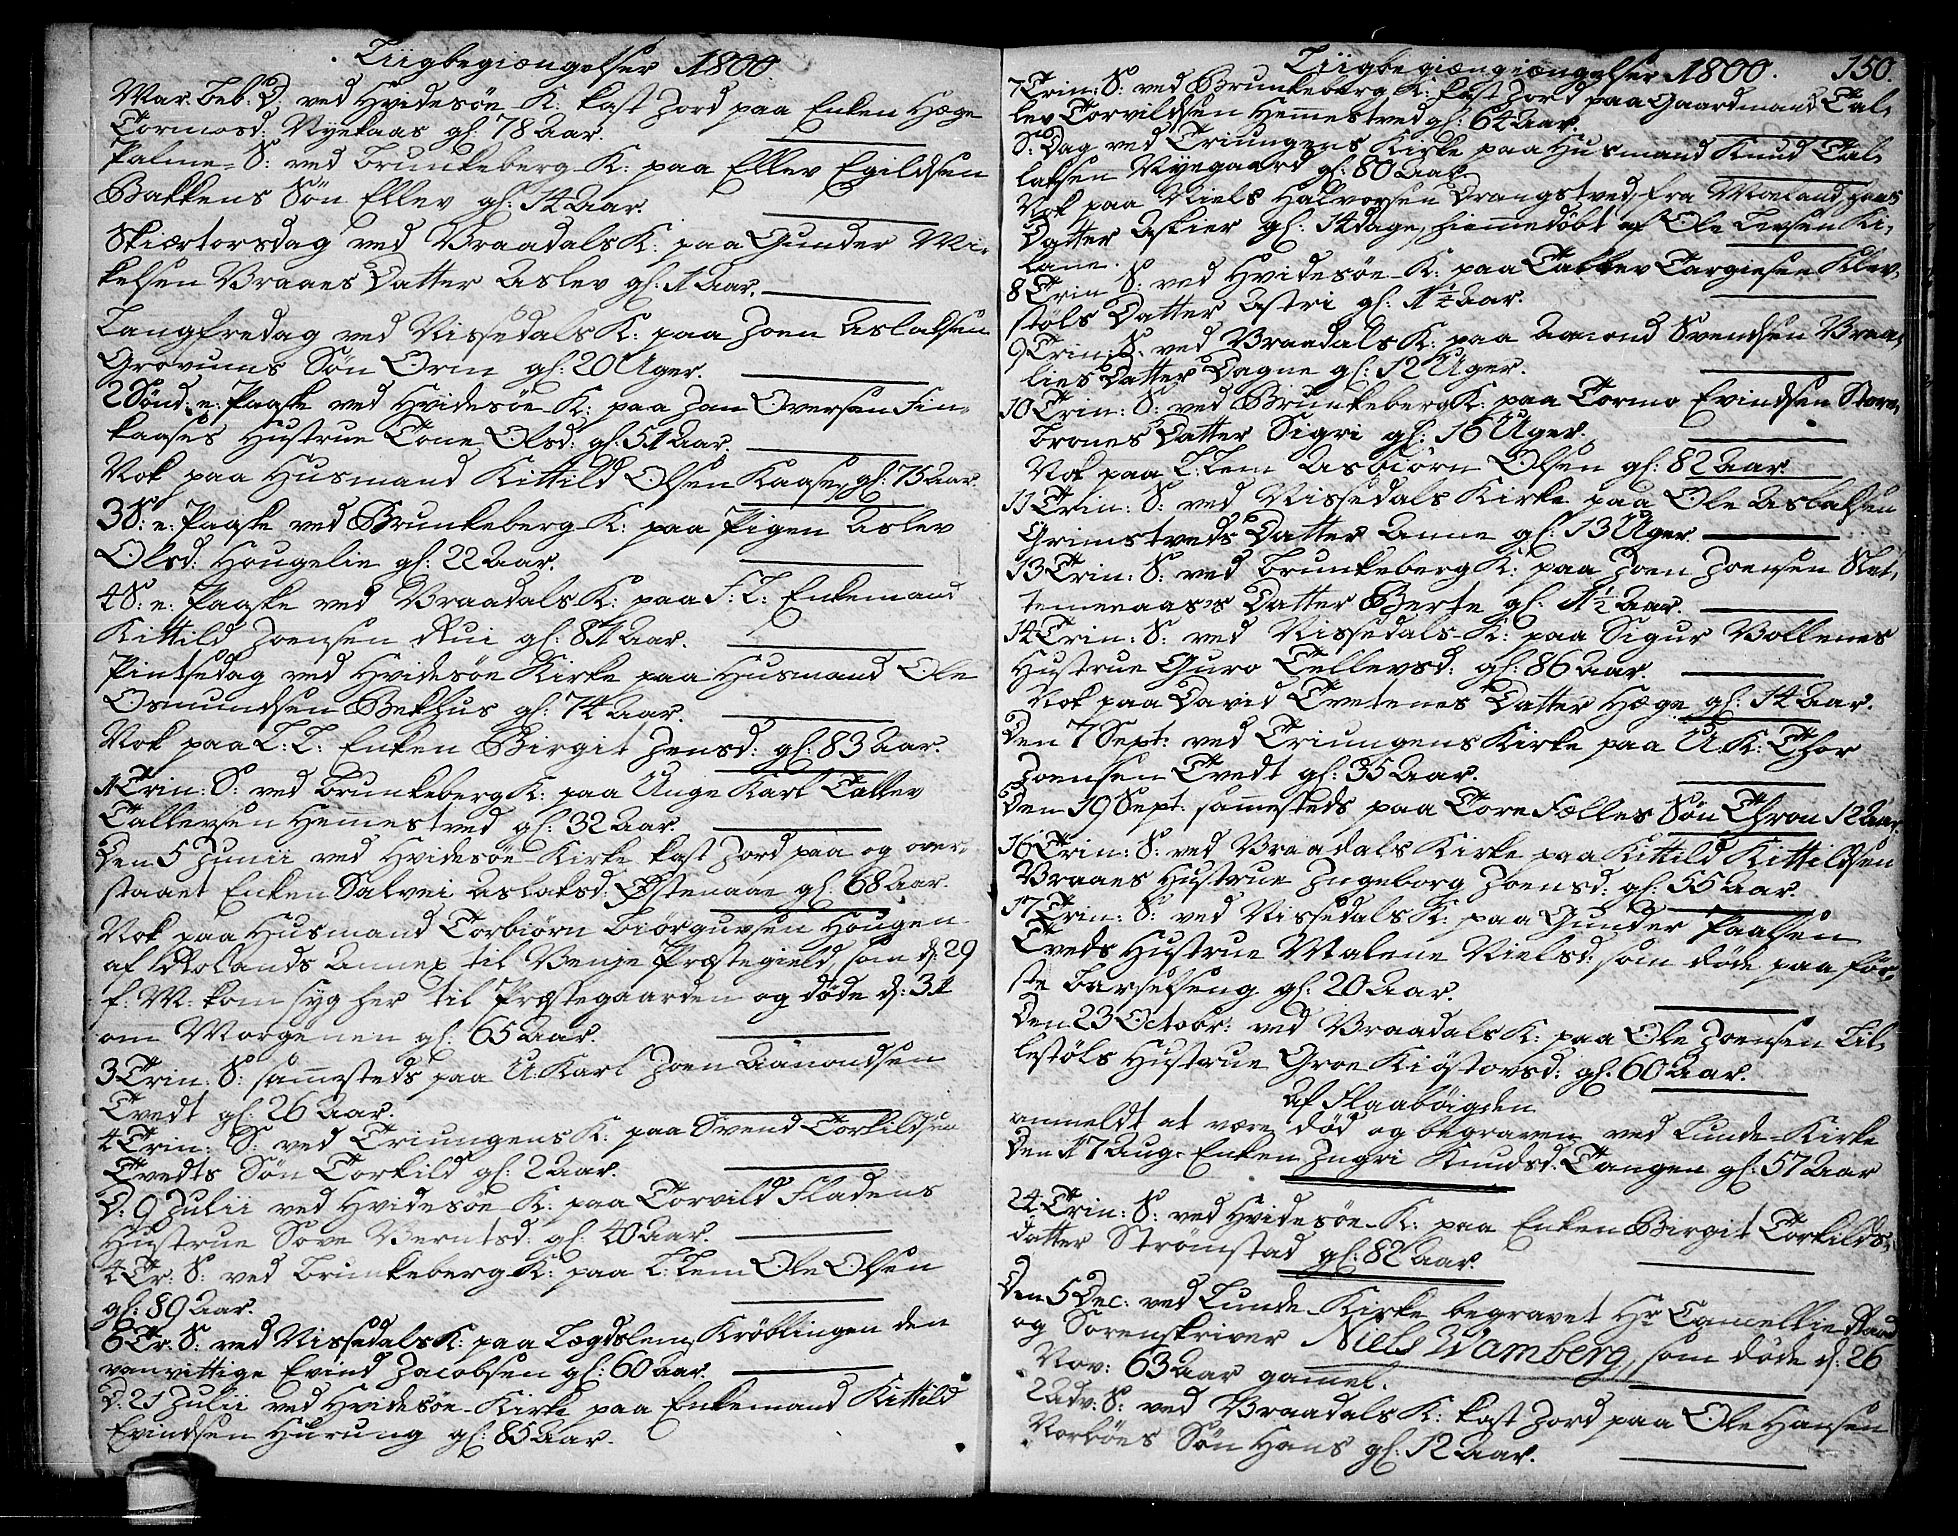 Liigbegiængelser 1800
Mar. Beb. D. ved Hvidesøe K: kast Jord paa Enken Hæge
Tormosd: Nyekaas gl: 78 Aar.
Palme-S: ved Brunkeberg K: paa Ellev Egildsen
Bakkens Søn Ellev gl: 14 Aar.
Skiærtorsdag ved Vraadals K: paa Gunder Mi-
kelsen Vraaes Datter Aslev gl: 1 Aar.
Langfredag ved Nissedals K: paa Joen Aslaksen
Grovums Søn Orm gl: 20 Uger.
2 Sönd: e: Paaske ved Hvidesøe K: paa Jon Oversen Fin-
kaases Hustrue Tone Olsd: gl: 51 Aar.
Nok paa Husmand Kittild Olsen Kaasen gl: 75 Aar.
3 S: e: Paaske ved Brunkeberg K: paa Pigen Aslev
Olsd: Hougelie gl: 22 Aar.
4 S: e: Paaske ved Vraadals K: paa F: L: Enkemand
Kittild Joensen Rui gl: 81 Aar.
Pintsedag ved Hvidesøe Kirke paa Husmand Ole
Osmundsen Bekhus gl: 74 Aar.
Nok paa L: L: Enken Birgit Jensd: gl: 83 Aar.
1 Trin: S: ved Brunkeberg K: paa Unge Karl Tallev
Tallevsen Hemestved gl: 32 Aar
Den 5 Junii ved Hvidesøe Kirke kast Jord paa og over-
staaet Enken Salvei Aslaksd: Østenaae gl: 68 Aar.
Nok paa Husmand Torbiørn Biørguvsen Hougen
af Molands Annex til Venje Præstegield, som d: 29
f. M: kom syg her til Præstegaarden og døde d: 31
om Morgenen gl: 65 Aar.
3 Trin: S: samesteds paa U: Karl Joen Aamondsen
Tvedt gl: 26 Aar.
4 Trin: S: ved Triungens K: paa Svend Torkildsen
Tvedts Søn Torkild gl: 2 Aar.
D: 9 Julii ved Hvidesøe K: paa Torvild Fladens
Hustrue Søve Berntsd: gl: 40 Aar.
4 Tr: S: ved Brunkeberg K: paa L: Lem Ole Olsen
gl: 89 Aar.
6 Tr: S: ved Nissedals K: paa Lægdslem, Krøblingen den
vanvittige Evind Jacobsen gl: 60 Aar.
D: 21 Julii ved Hvidesøe Kirke paa Enkemand Kittild
Evindsen Hurung gl: 85 Aar.
Liigbegiængiængelser 1800. 150.
7 Trin: S: ved Brunkeberg K: kast Jord paa Gaardmand Tal-
lev Torvildsen Hemestved gl: 64 Aar.
S: Dag ved Triungens Kirke paa Husmand Knud Tal-
laksen Nyegaard gl: 80 Aar
Nok paa Niels Halvorsen Vrangstved, fra Moeland, hans
Datter Askier gl: 14 dage, hiemmedøbt af Ole Lersen Ki-
lane.
8 Trin S: ved Hvidesøe K: paa Talkev Targiesen Klev-
støls Datter Astri gl: 1½ Aar.
9 Trin: S: ved Vraadals K: paa Aamond Svendsen Vraa-
lies Datter Dagne gl: 12 Uger.
10 Trin: S: ved Brunkeberg K: paa Tormo Evindsen Store-
brones Datter Sigri gl: 16 Uger.
Nok paa L: Lem Asbiørn Olsen gl: 82 Aar
11 Trin: S: ved Nissedals Kirke paa Ole Aslaksen
Grimstveds Datter Anne gl: 13 Uger
13 Trin: S: ved Brunkeberg K: paa Joen Joensen Slet-
temeaas's Datter Berte gl: 1½ Aar.
14 Trin: S: ved Nissedals K: paa Sigur Bollenes
Hustrue Guro Tellevsd: gl: 86 Aar.
Nok paa David Tvetenes Datter Hæge gl: 14 Aar.
Den 7 Sept: ved Triungens Kirke paa U: K: Thor
Joensen Tvedt gl: 35 Aar.
Den 19 Sept: samesteds paa Tore Fælles Søn Thron 12 Aar
16 Trin: S: ved Vraadals Kirke paa Kittild Kittildsen
Vraaes Hustrue Ingeborg Joensd: gl: 55 Aar.
17 Trin: S: ved Nissedals K: paa Gunder Paalsen
Tveds Hustrue Malene Nielsd: som døde paa før-
ste Barselseng gl: 20 Aar.
Den 23 Octobr: ved Vraadals K: paa Ole Joensen Lil-
lestøls Hustrue Groe Kiøstovsd: gl: 60 Aar.
Af Flaabøigden
anmeldt at være død og begraven ved Lunde-Kirke
Den 17 Aug: Enken Ingri Knudsd: Tangen gl: 57 Aar
24 Trin: S: ved Hvidesøe K: paa Enken Birgit Torkilds-
datter Strømstad gl: 82 Aar.
Den 5 Dec: ved Lunde-Kirke begravet Hr: Cancellie Raad
og Sorenskriver Niels Wamberg, som døde d: 26
Nov: 63 Aar gammel.
2 Adv: S: ved Vraadals K: kast Jord paa Ole Hansen
Norbøes Søn Hans gl: 12 Aar.